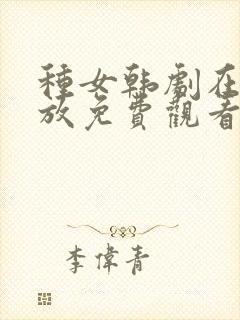 種女韩劇在
放免費觀看
李偉青